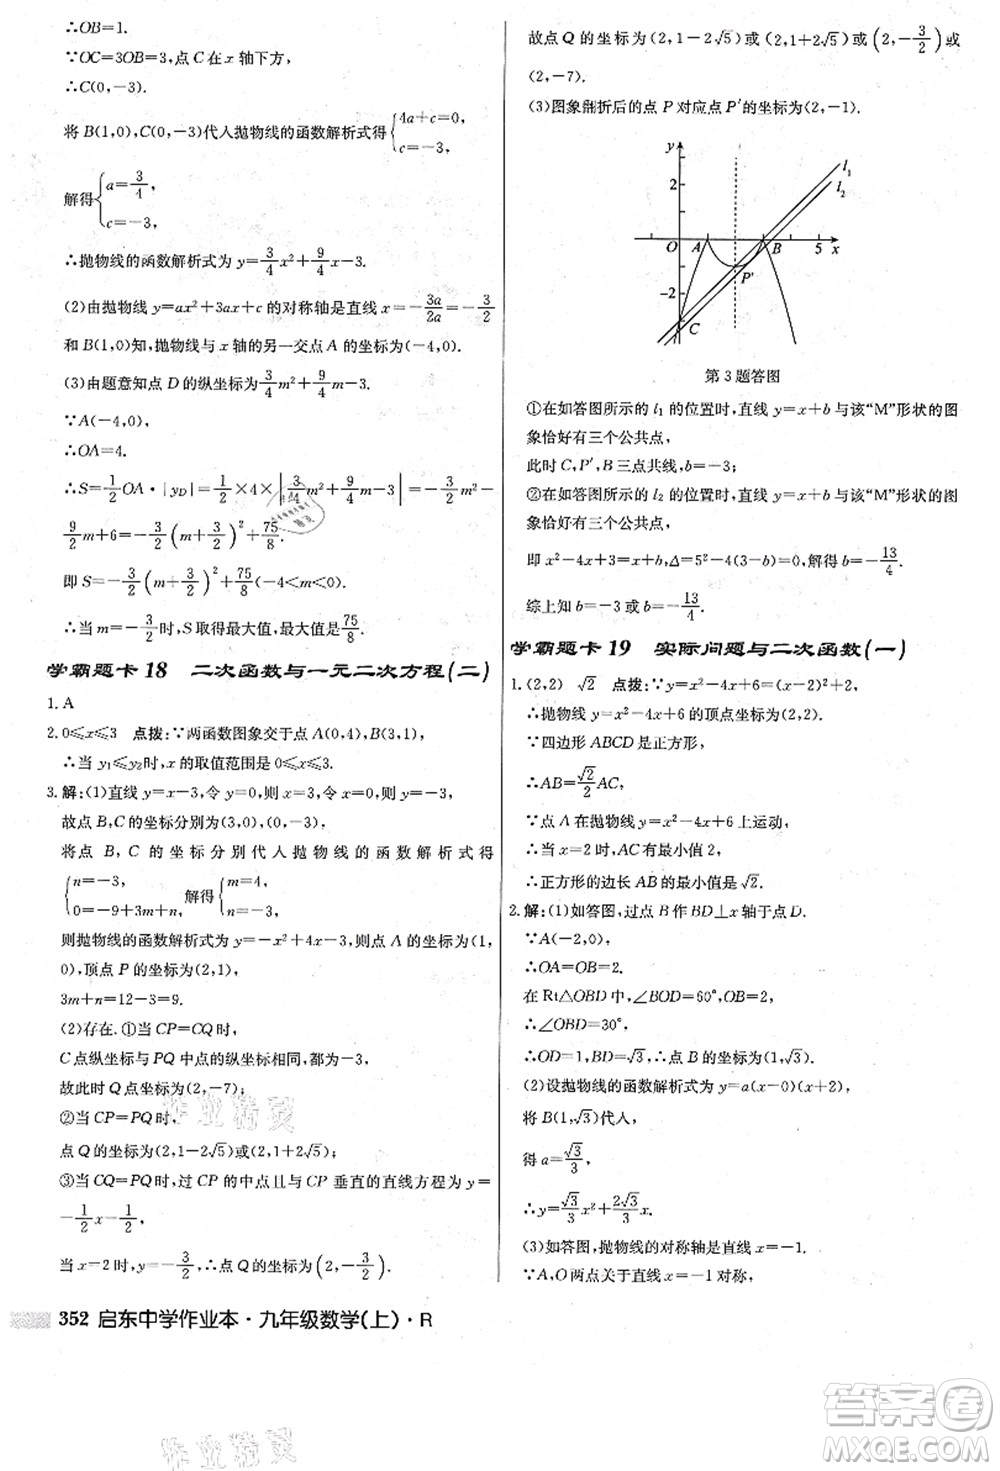 ∴OB=1.
∵OC=3OB=3,点 C 在 x 轴下方,
∴C(0,-3).
将 B(1,0),C(0,-3)代入抛物线的函数解析式得{4a+c=0, c=-3,
解得{a=3/4, c=-3,
∴抛物线的函数解析式为 y=3/4x²+9/4x-3.
(2)由抛物线 y=ax²+3ax+c 的对称轴是直线 x=-3a/2a=-3/2
和 B(1,0)知,抛物线与 x 轴的另一交点 A 的坐标为(-4,0).
(3)由题意知点 D 的纵坐标为3/4m²+9/4m-3.
∵A(-4,0),
∴OA=4.
∴S=1/2OA·|y_D|=1/2×4×|3/4m²+9/4m-3|=-3/2m²-
9/2m+6=-3/2(m+3/2)²+75/8.
即 S=-3/2(m+3/2)²+75/8(-4<m<0).
∴当 m=-3/2时,S 取得最大值,最大值为75/8.
学霸题卡 18 二次函数与一元二次方程(二)
1. A
2. 0≤x≤3 点拨:∵两函数图象交于点 A(0,4),B(3,1),
∴当 y₁≤y₂时,x 的取值范围是 0≤x≤3.
3. 解:(1)直线 y=x-3,令 y=0,则 x=3,令 x=0,则 y=-3,
故点 B,C 的坐标分别为(3,0),(0,-3),
将点 B,C 的坐标分别代入抛物线的函数解析式得
{n=-3, 0=-9+3m+n,解得{m=4, n=-3,
则抛物线的函数解析式为 y=-x²+4x-3,则点 A 的坐标为(1,
0),顶点 P 的坐标为(2,1),
3m+n=12-3=9.
(2)存在.①当 CP=CQ时,
C 点纵坐标与 PQ 中点的纵坐标相同,都为-3,
故此时 Q 点坐标为(2,-7);
②当 CP=PQ时,
点 Q 的坐标为(2,1-2√5)或(2,1+2√5);
③当 CQ=PQ时,过 CP 的中点且与 CP 垂直的直线方程为 y=
-1/2x-1/2,
当 x=2 时,y=-3/2,∴点 Q的坐标为(2,-3/2).
故点 Q 的坐标为(2,1-2√5)或(2,1+2√5)或(2,-3/2)或
(2,-7).
(3)图象翻折后的点 P 对应点 P′的坐标为(2,-1).
y
2
l₁
l₂
O A B 5 x
P′
-2
C
第 3 题答图
①在如答图所示的 l₁ 的位置时,直线 y=x+b 与该“M”形状的图
象恰好有三个公共点,
此时 C,P′,B 三点共线,b=-3;
②在如答图所示的 l₂ 的位置时,直线 y=x+b 与该“M”形状的图
象恰好有三个公共点,
即 x²-4x+3=x+b,Δ=5²-4(3-b)=0,解得 b=-13/4.
综上知 b=-3 或 b=-13/4.
学霸题卡 19 实际问题与二次函数(一)
1. (2,2) √2 点拨:∵y=x²-4x+6=(x-2)²+2,
∴抛物线 y=x²-4x+6 的顶点坐标为(2,2).
∵四边形 ABCD 是正方形,
∴AB=√2/2AC,
∵点 A 在抛物线 y=x²-4x+6 上运动,
∴当 x=2 时,AC 有最小值 2,
∴正方形的边长 AB 的最小值是√2.
2. 解:(1)如答图,过点 B 作 BD⊥x 轴于点 D.
∵A(-2,0),
∴OA=OB=2.
在 Rt△OBD 中,∠BOD=60°,OB=2,
∴∠OBD=30°,
∴OD=1,BD=√3,∴点 B 的坐标为(1,√3).
(2)设抛物线的函数解析式为 y=a(x-0)(x+2),
将 B(1,√3)代入,
得 a=√3/3,
∴y=√3/3x²+2√3/3x.
(3)如答图,抛物线的对称轴是直线 x=-1.
∵A,O 两点关于直线 x=-1 对称,
352 启东中学作业本·九年级数学(上)·R
作业精灵
作业精灵
答案圈
MXQE.COM